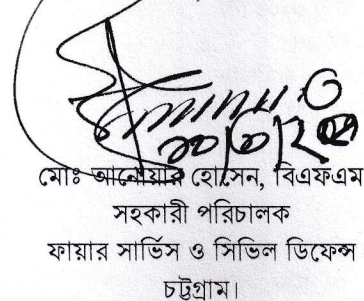 মোঃ আনোয়ার হোসেন, বিএফএম
সহকারী পরিচালক
ফায়ার সার্ভিস ও সিভিল ডিফেন্স
চট্টগ্রাম।